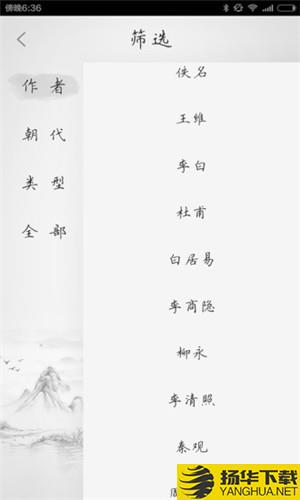 傍晚6:36
筛选
作者
朝代
类型
全部
佚名
王维
李白
杜甫
白居易
李商隐
柳永
李清照
秦观
扬华下载
YANGHUA.NET